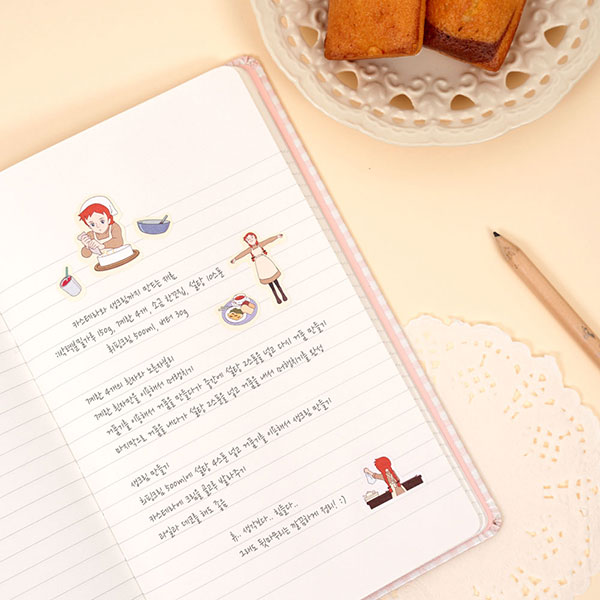 카스테라와 생크림까지 만드는 재료
박력밀가루 150g, 계란 4개, 소금 한꼬집, 설탕 10스푼
휘핑크림 500ml, 버터 30g
계란 4개의 흰자와 노른자분리
계란 흰자만을 이용해서 머랭치기
거품기를 이용해서 거품을 만들다가 중간에 설탕 2스푼을 넣고 다시 거품 만들기
마지막으로 거품을 내다가 설탕 2스푼을 넣고 거품을 내서 머랭치기를 완성
생크림 만들기
휘핑크림 500ml에 설탕 4스푼 넣고 거품기를 이용해서 생크림 만들기
카스테라에 크림을 골고루 발라주기
과일과 데코를 해도 좋음
휴.. 생각보다.. 힘들다..
그래도 뒷마무리는 깔끔하게 정리! :)